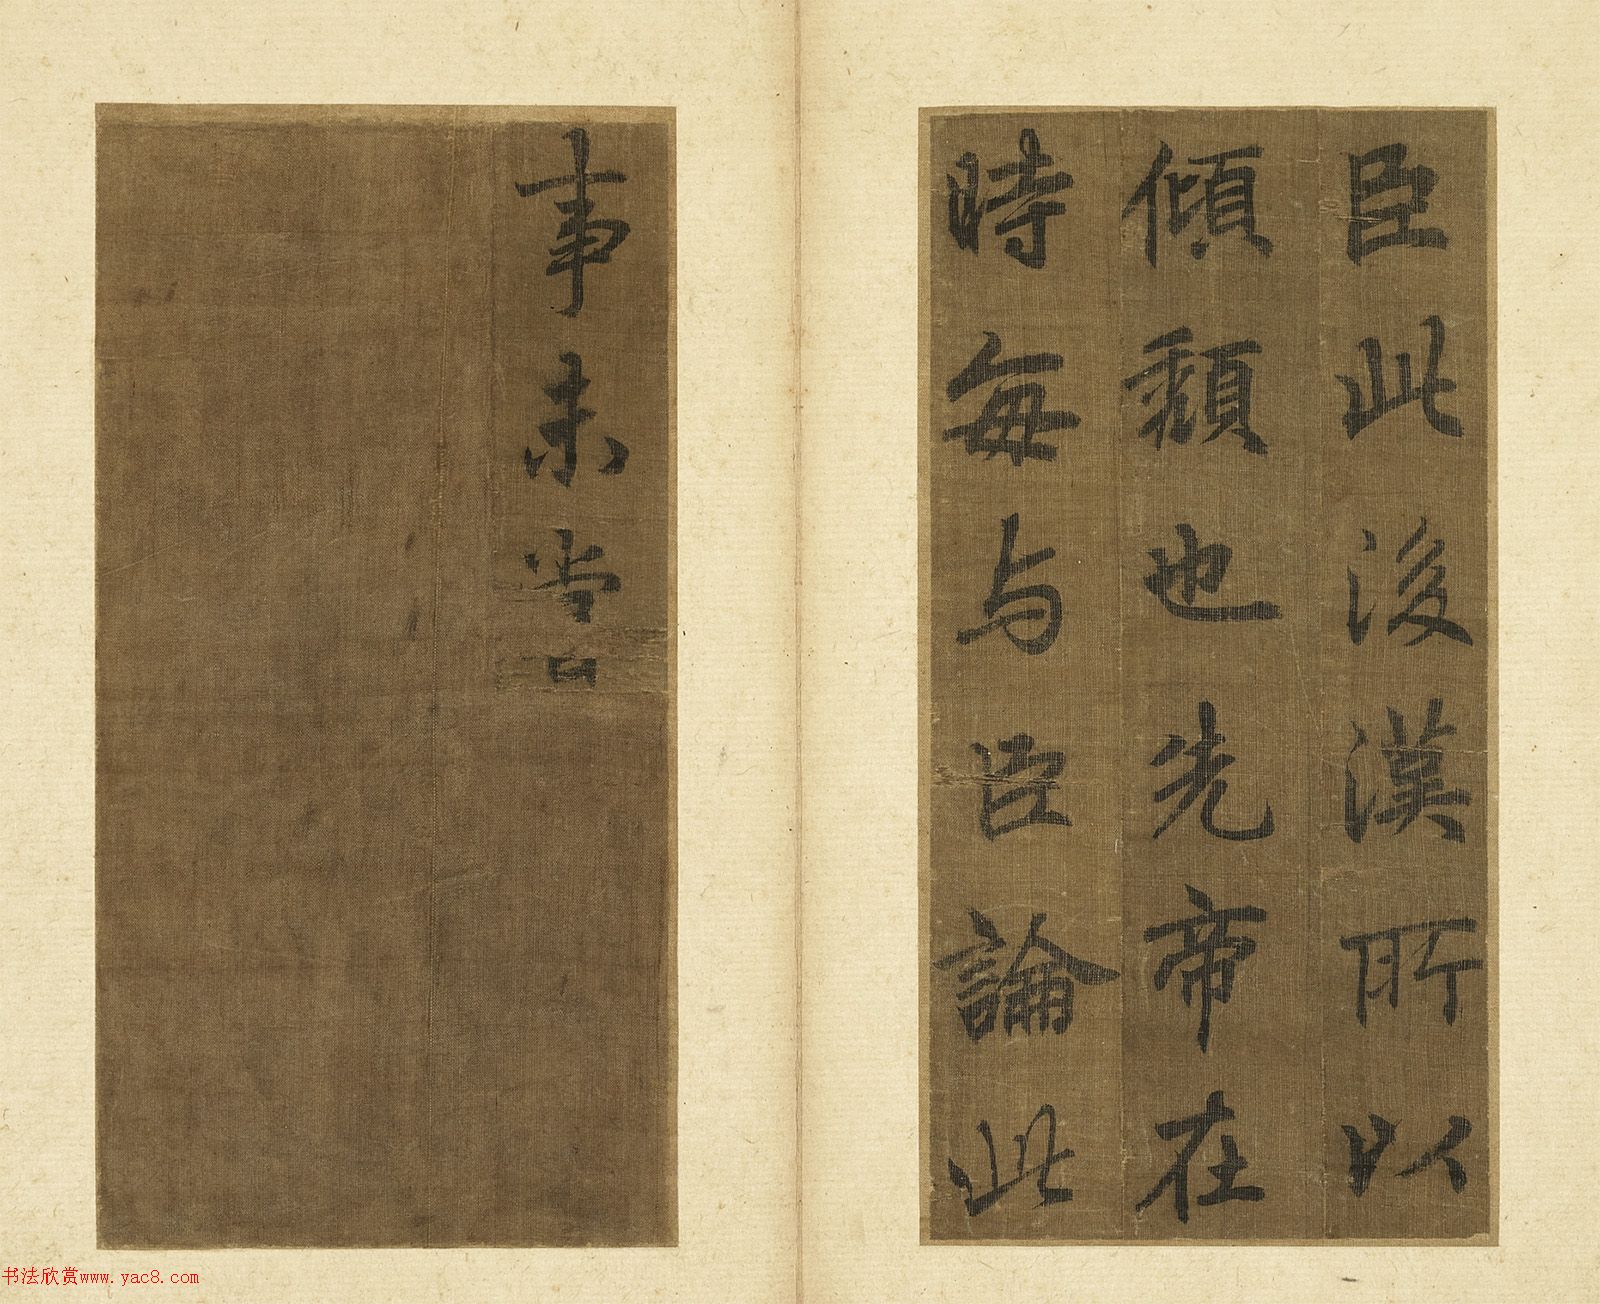 臣此後漢所以
傾頹也先帝在
時每与臣論此
事未甞
书法欣赏www.yac8.com